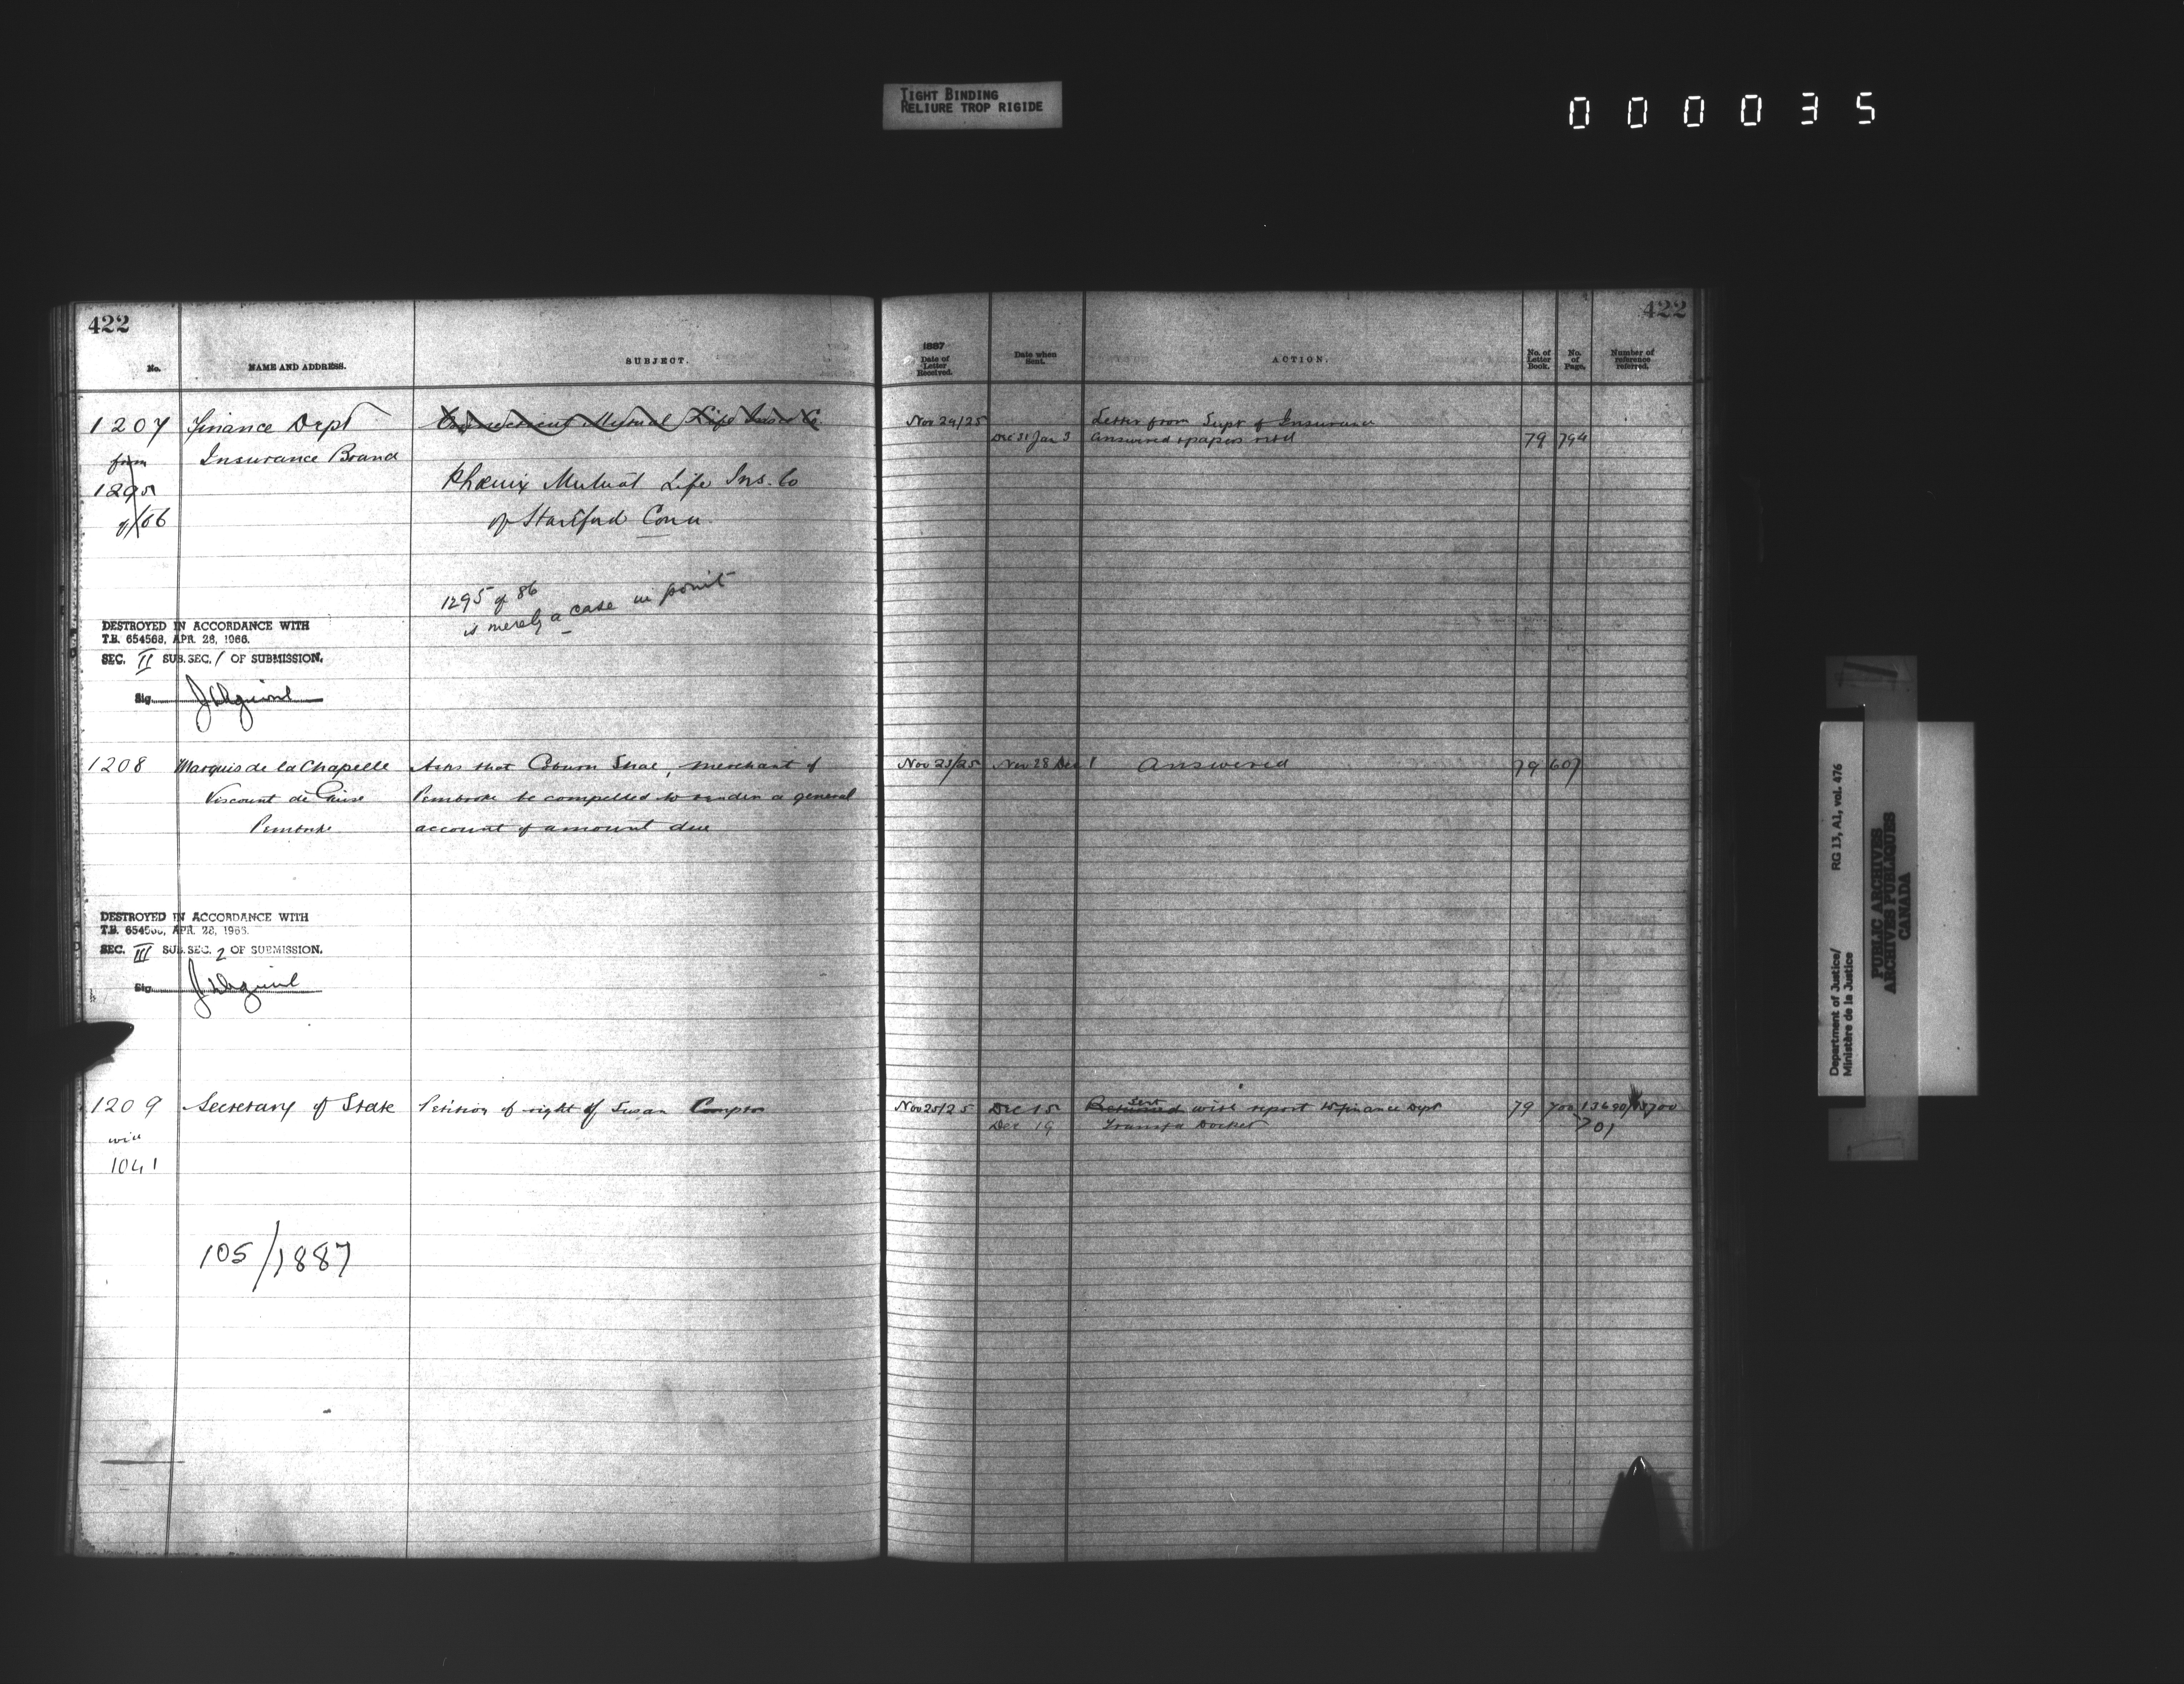 TIGHT BINDING
RELIURE TROP RIGIDE
000035
422
No.
NAME AND ADDRESS.
SUBJECT.
1207 Finance Dept Connecticut Mutual Life Insce Co
from Insurance Branc
1295 Phœnix Mutual Life Ins. Co
of/86 of Hartford Conn.
1295 of 86
is merely a case in point
DESTROYED IN ACCORDANCE WITH
T.B. 654568, APR. 28, 1966.
SEC. II SUB. SEC. 1 OF SUBMISSION.
Sig.
1208 Marquis de la Chapelle Asks that merchant of
Viscount de Pembroke be compelled to render a general
Pembroke account of amount due
DESTROYED IN ACCORDANCE WITH
T.B. 654568, APR. 28, 1966.
SEC. III SUB. SEC. 2 OF SUBMISSION.
Sig.
1209 Secretary of State Petition of right of Susan Compton
with
1041
105/1887
422
1887
Date of
Letter
Received.
Date when
Sent.
ACTION.
No. of
Letter
Book.
No.
of
Page.
Number of
reference
referred.
Nov 24/25 Letter from Supt of Insurance
Dec 31 Jan 3 Answered & papers retd 79 794
Nov 23/25 Nov 28 Dec 1 Answered 79 607
Nov 25/25 Dec 15 Returned sent with report to Finance Dept 79 700
Dec 19 Docket 701
Department of Justice/ RG 13, A1, vol. 476
Ministère de la Justice
PUBLIC ARCHIVES
ARCHIVES PUBLIQUES
CANADA